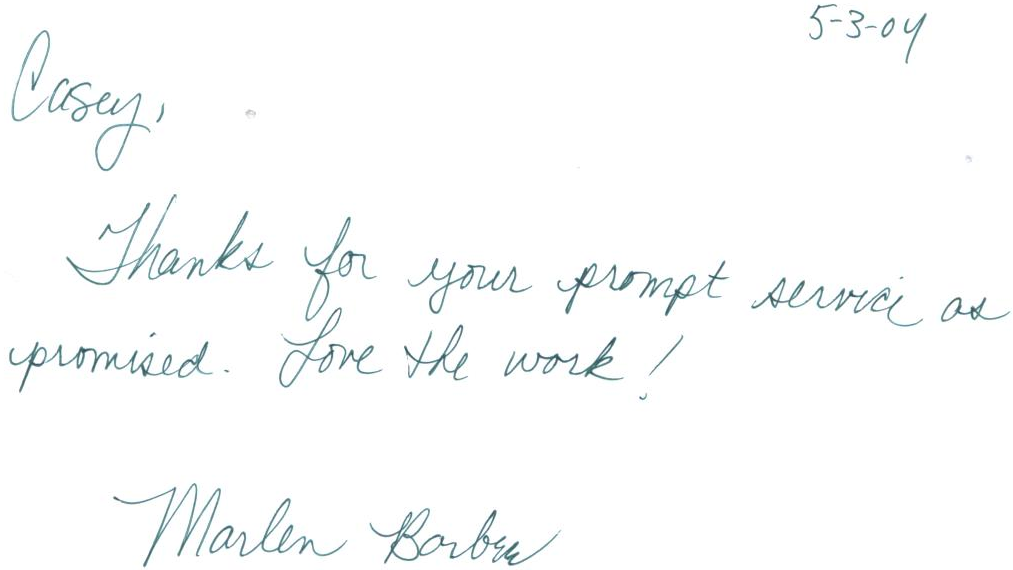 5-3-04
Casey,
Thanks for your prompt service as
promised. Love the work!
Marlen